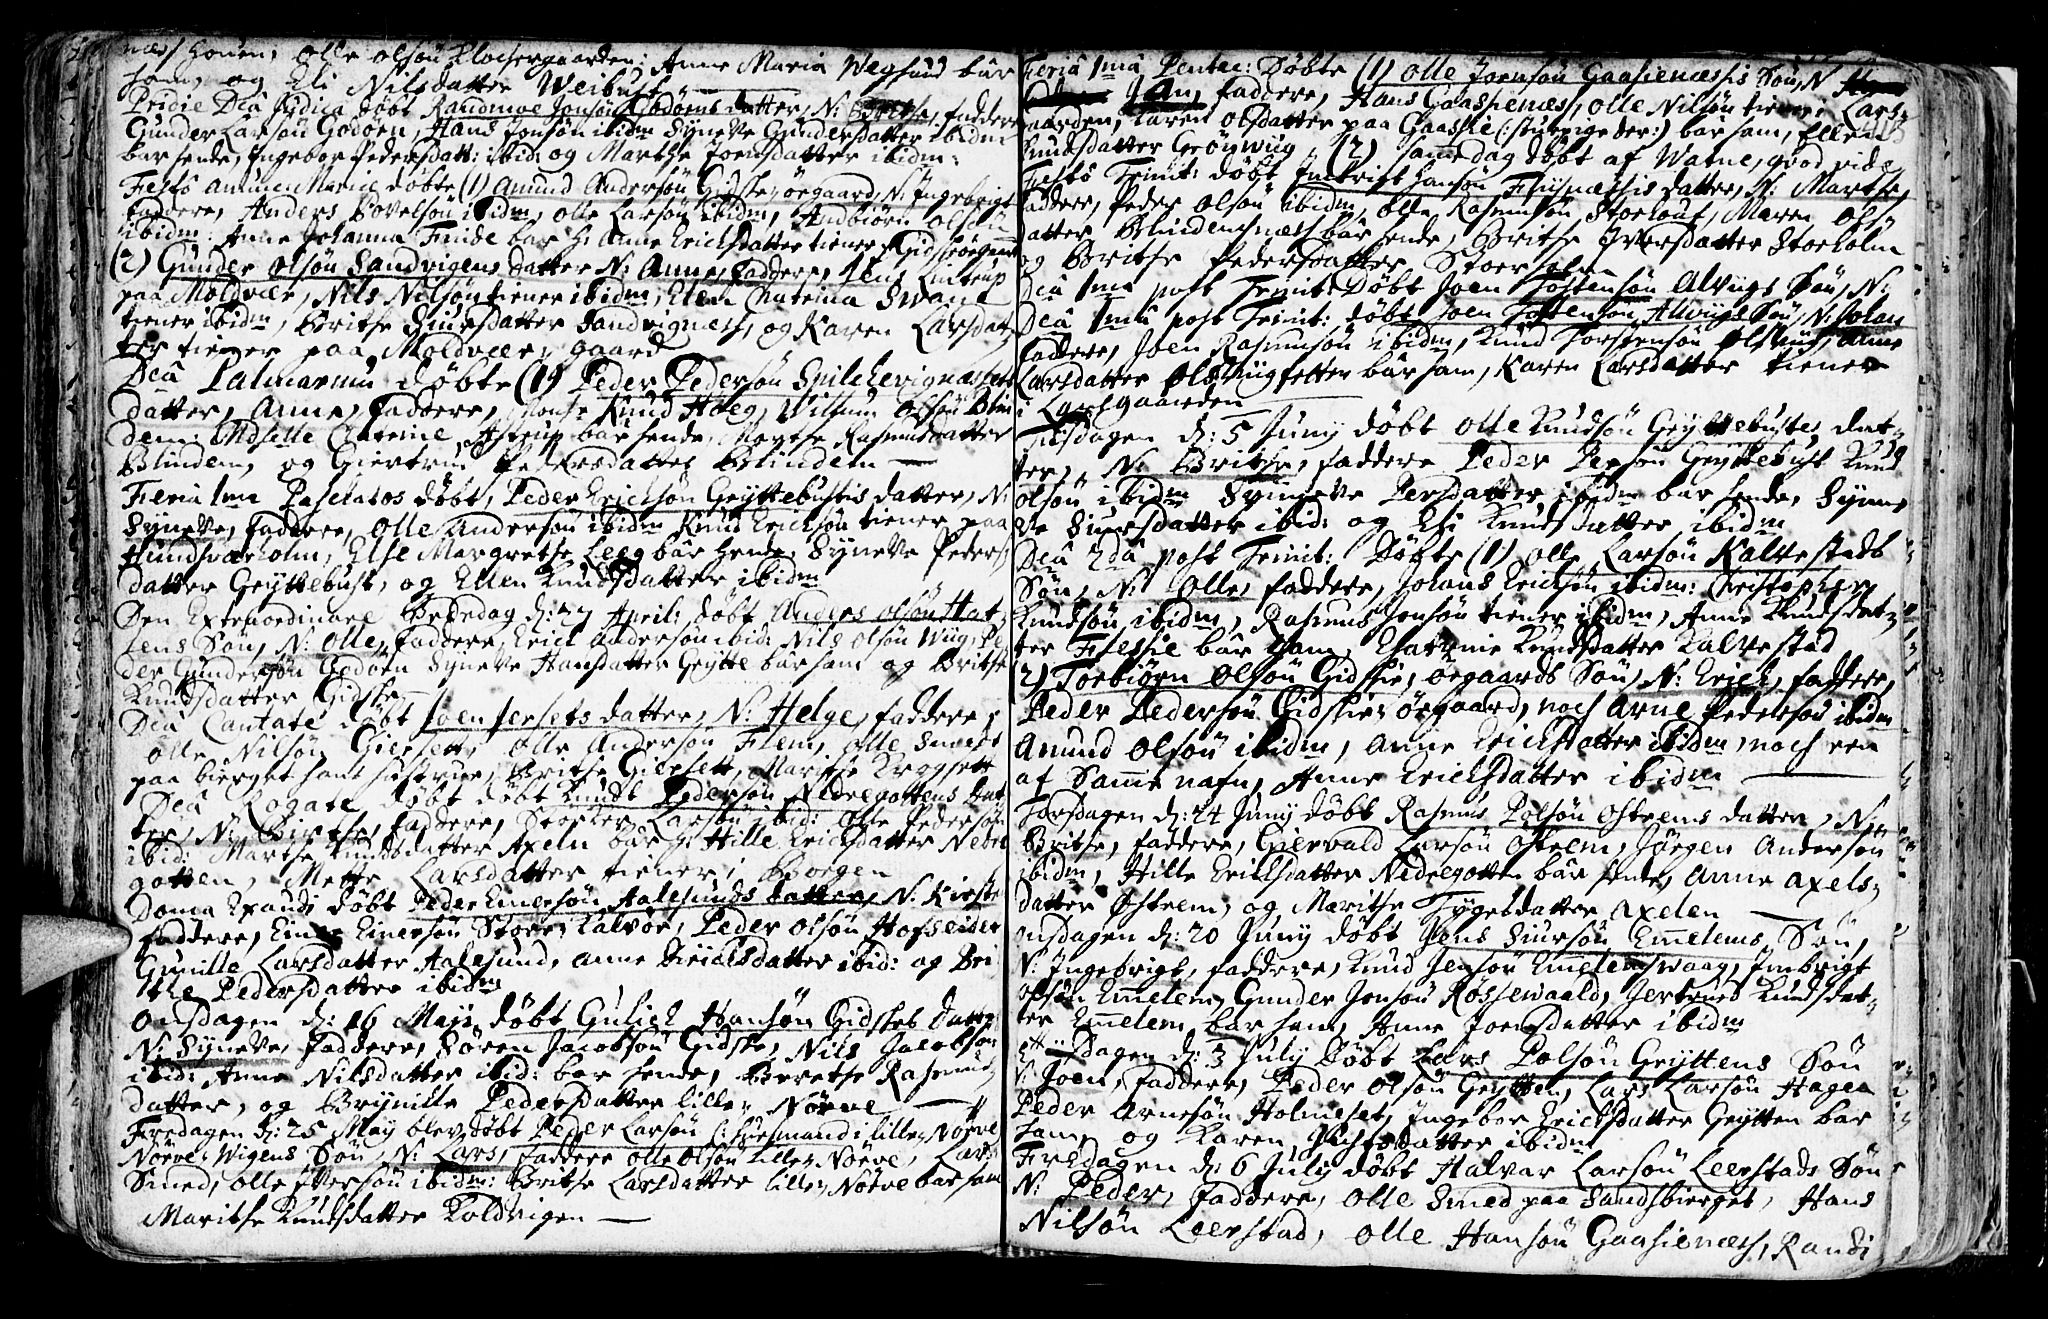 næss houen, olle olsøn Klochergaarden: Anne Maria Weghsund bar
ham, og Eli Nilsdatter Weibust —
Pridie Dea Judica døbt Randmoe Jonsøn Godøens datter, N: Børthe, faddere
Gunder Larsøn Godøen, Hans Jonsøn ibidm Syneve Gundersdatter ibidm
bar hende, Ingebor Pedersdatt: ibid: og Marthe Joensdatter ibidm:
Festo annunc: Mariæ døbte (1) Amund Andersøn Gidske, øregaard, N: Ingebrigt
faddere, Anders Povelsøn ibidm, olle Larsøn ibidm, Andbiørn olsøn
ibidm: Anne Johanna Finde bar h: Anne Ericksdatter tiener Gidskøegaard
(2) Gunder olsøn Sandvigens datter N: Anne, faddere, Jens Lintrup
paa Moldvær, Nils Nilsøn tiener ibidm, Elen Chatrina Svane
tiener ibidm, Brithe Siursdatter Sandvignæss, og Karen Larsdat-
ter tiener paa Moldvær, gaard
Dca Palmarum døbte (1) Peder Pedersøn Spilchevignæssets
datter, Anne, faddere, Knud Høeg, Villum olsøn Blin
dem: Mdselle Chatrine Astrup bar hende, Marthe Rasmusdatter
Blindem, og Giertrud Pedersdatter Blindem —
Feria 1ma Paschatos døbt, Peder Ericksøn Gryttebustis datter, N:
Syneve, faddere, olle Andersøn ibidm Knud Ericksøn tiener paa
Hundsværholm, Else Margrethe Leeg bar hende, Syneve Peders
datter Gryttebust, og Ellen Knudsdatter ibidm
Den Extraordinaire Bededag d: 27 April: døbt Anders olsøn Hat-
lens Søn, N: olle, faddere, Erick Andersøn ibid: Nils olsøn Wug, Pe
der Gundersøn Godøen Syneve Hansdatter Grytte bar ham og Brithe
Knudsdatter Gidske —
Dca Cantate døbt Joen Jersets datter, N: Helge, faddere,
olle Nilsøn Giersett, olle Andersøn Flem, olle Smeds
paa bierget hans hustrue, Brithe Giersett, Marithe Krogsett
Dca Rogate døbt døbt Knud Pedersøn Nedregottens Dat
ter, N: Birthe, faddere, Larsøn ibid: Olle Pedersøn
ibid: Marthe Knudsdatter Axeln bar h: Hille Ericksdatter Nedre
gotten, Mette Larsdatter tiener i Borgen
Doma Exaudi døbt Peder Einersøn Aalesunds datter, N: Kirste
faddere, Einer Einersøn Store, Kalvøe, Peder olsøn Hofseidet
Gunille Larsdatter Aalesund, Anne Dirichsdatter ibid: og Bri
the Pedersdatter ibidm
Onsdagen d: 16 Maji døbt Gulich Hansøn Gidskes datter
N: Syneve, faddere, Søren Jacobsøn Gidske, Nils Jacobsøn
ibid: Anne Nilsdatter ibid: bar hende, Berethe Rasmus
datter, og Brynille Pedersdatter lille, Nørve —
Fredagen d: 25 May blev døbt Peder Larsøn (: huusmand i lille, Nørve
Nørve, Wigens Søn, N: Lars, faddere olle olsøn lille, Nørve, Lars
Smed, olle Iversøn ibidm: Brithe Larsdatter lille, Nørve bar ham
Marithe Knudsdatter Koldvigen —
Feria 1ma Pentec: Døbte (1) olle Joensøn Gaasienæssis Søn, N
Jan, faddere, Hans Gaasienæss, olle Nilsøn tiener i Lars-
gaarden, Karen olsdatter paa Gaasie (: stuepige der:) bar ham, Ellen
Knudsdatter Grøywug, (2) samme dag døbt af Watne, qvod vide
Festo Trinit: døbt Imbrigt Hansøn Flisnæssis datter, N: Marthe,
faddere, Peder olsøn ibidm, olle Rasmusøn Storlouf, Maren ols
datter Blindemsnæss bar hende, Brithe Iversdatter Storholm
og Brithe Pedersdatter Storholm
Dca 1ma post Trinit: Døbt Joen Tostensøn Alvugs Søn, N:
Dca 1ma post Trinit: døbt Joen Tostensøn Alvugs Søn, N: Johan
faddere, Joen Rasmusøn ibidm, Knud Torstensøn olsvug, Anne
Larsdatter olsvugsetter bar ham, Karen Larsdatter tiener
i Larsgaarden
Tirsdagen d: 5 Juny døbt olle Knudsøn Gryttebustes dat-
ter, N: Brithe, faddere Peder Persøn Gryttebust Knud
olsøn ibidm Syneve Persdatter ibidm bar hende, Synne
ve Siursdatter ibid: og Eli Knudsdatter ibidm
Dca 2da post Trinit: Døbte (1) olle Larsøn Kalvestads
Søn, N: olle, faddere, Johans Ericksøn ibidm: Christopher
Knudsøn ibidm, Rasmus Jonsøn tiener ibidm, Anne Knudsdat-
ter Flessie bar ham, Chatrine Knudsdatter Kalvestad
2) Torbiørn olsøn Gidskie, øegaards Søn, N: Erich, faddere,
Peder Pedersøn Gidskie, øregaard, noch Arne Pedersøn ibidm
Amund olsøn ibidm, Anne Ericksdatter ibidm, noch een
af Samme nafn, Anne Ericksdatter ibidm —
Torsdagen d: 24 Juny døbt Rasmus Polsøn Østrems datter, N:
Brithe, faddere, Giervald Larsøn Østrem, Jørgen Andersøn
ibidm, Hille Ericksdatter Nedregotten bar hende, Anne Axels-
datter Østrem, og Marithe Tygesdatter Axelen —
Onsdagen d: 20 Juny døbt Jens Siursøn Emelems Søn,
N: Ingebrigt, faddere, Knud Jensøn Emelemswaag, Imbrigt
olsøn Emelem, Gunder Jonsøn Rossewaald, Jertrud Knudsdat-
ter Emelem bar ham, Anne Joensdatter ibidm
Tiisdagen d: 3 July Døbt Lars Polsøn Gryttens Søn
N: Joen, faddere, Peder olsøn Grytten, Lars Larsøn Hagen
Peder Arnesøn Holmeset, Ingebor Ericksdatter Grytten bar
ham, og Karen datter ibidm
Fredagen d: 6 July døbt Halvar Larsøn Leerstads Søn
N: Peder, faddere, olle Smed paa Sandsbierget, Hans
Nilsøn Leerstad, olle Hansøn Gaasienæss, Randi